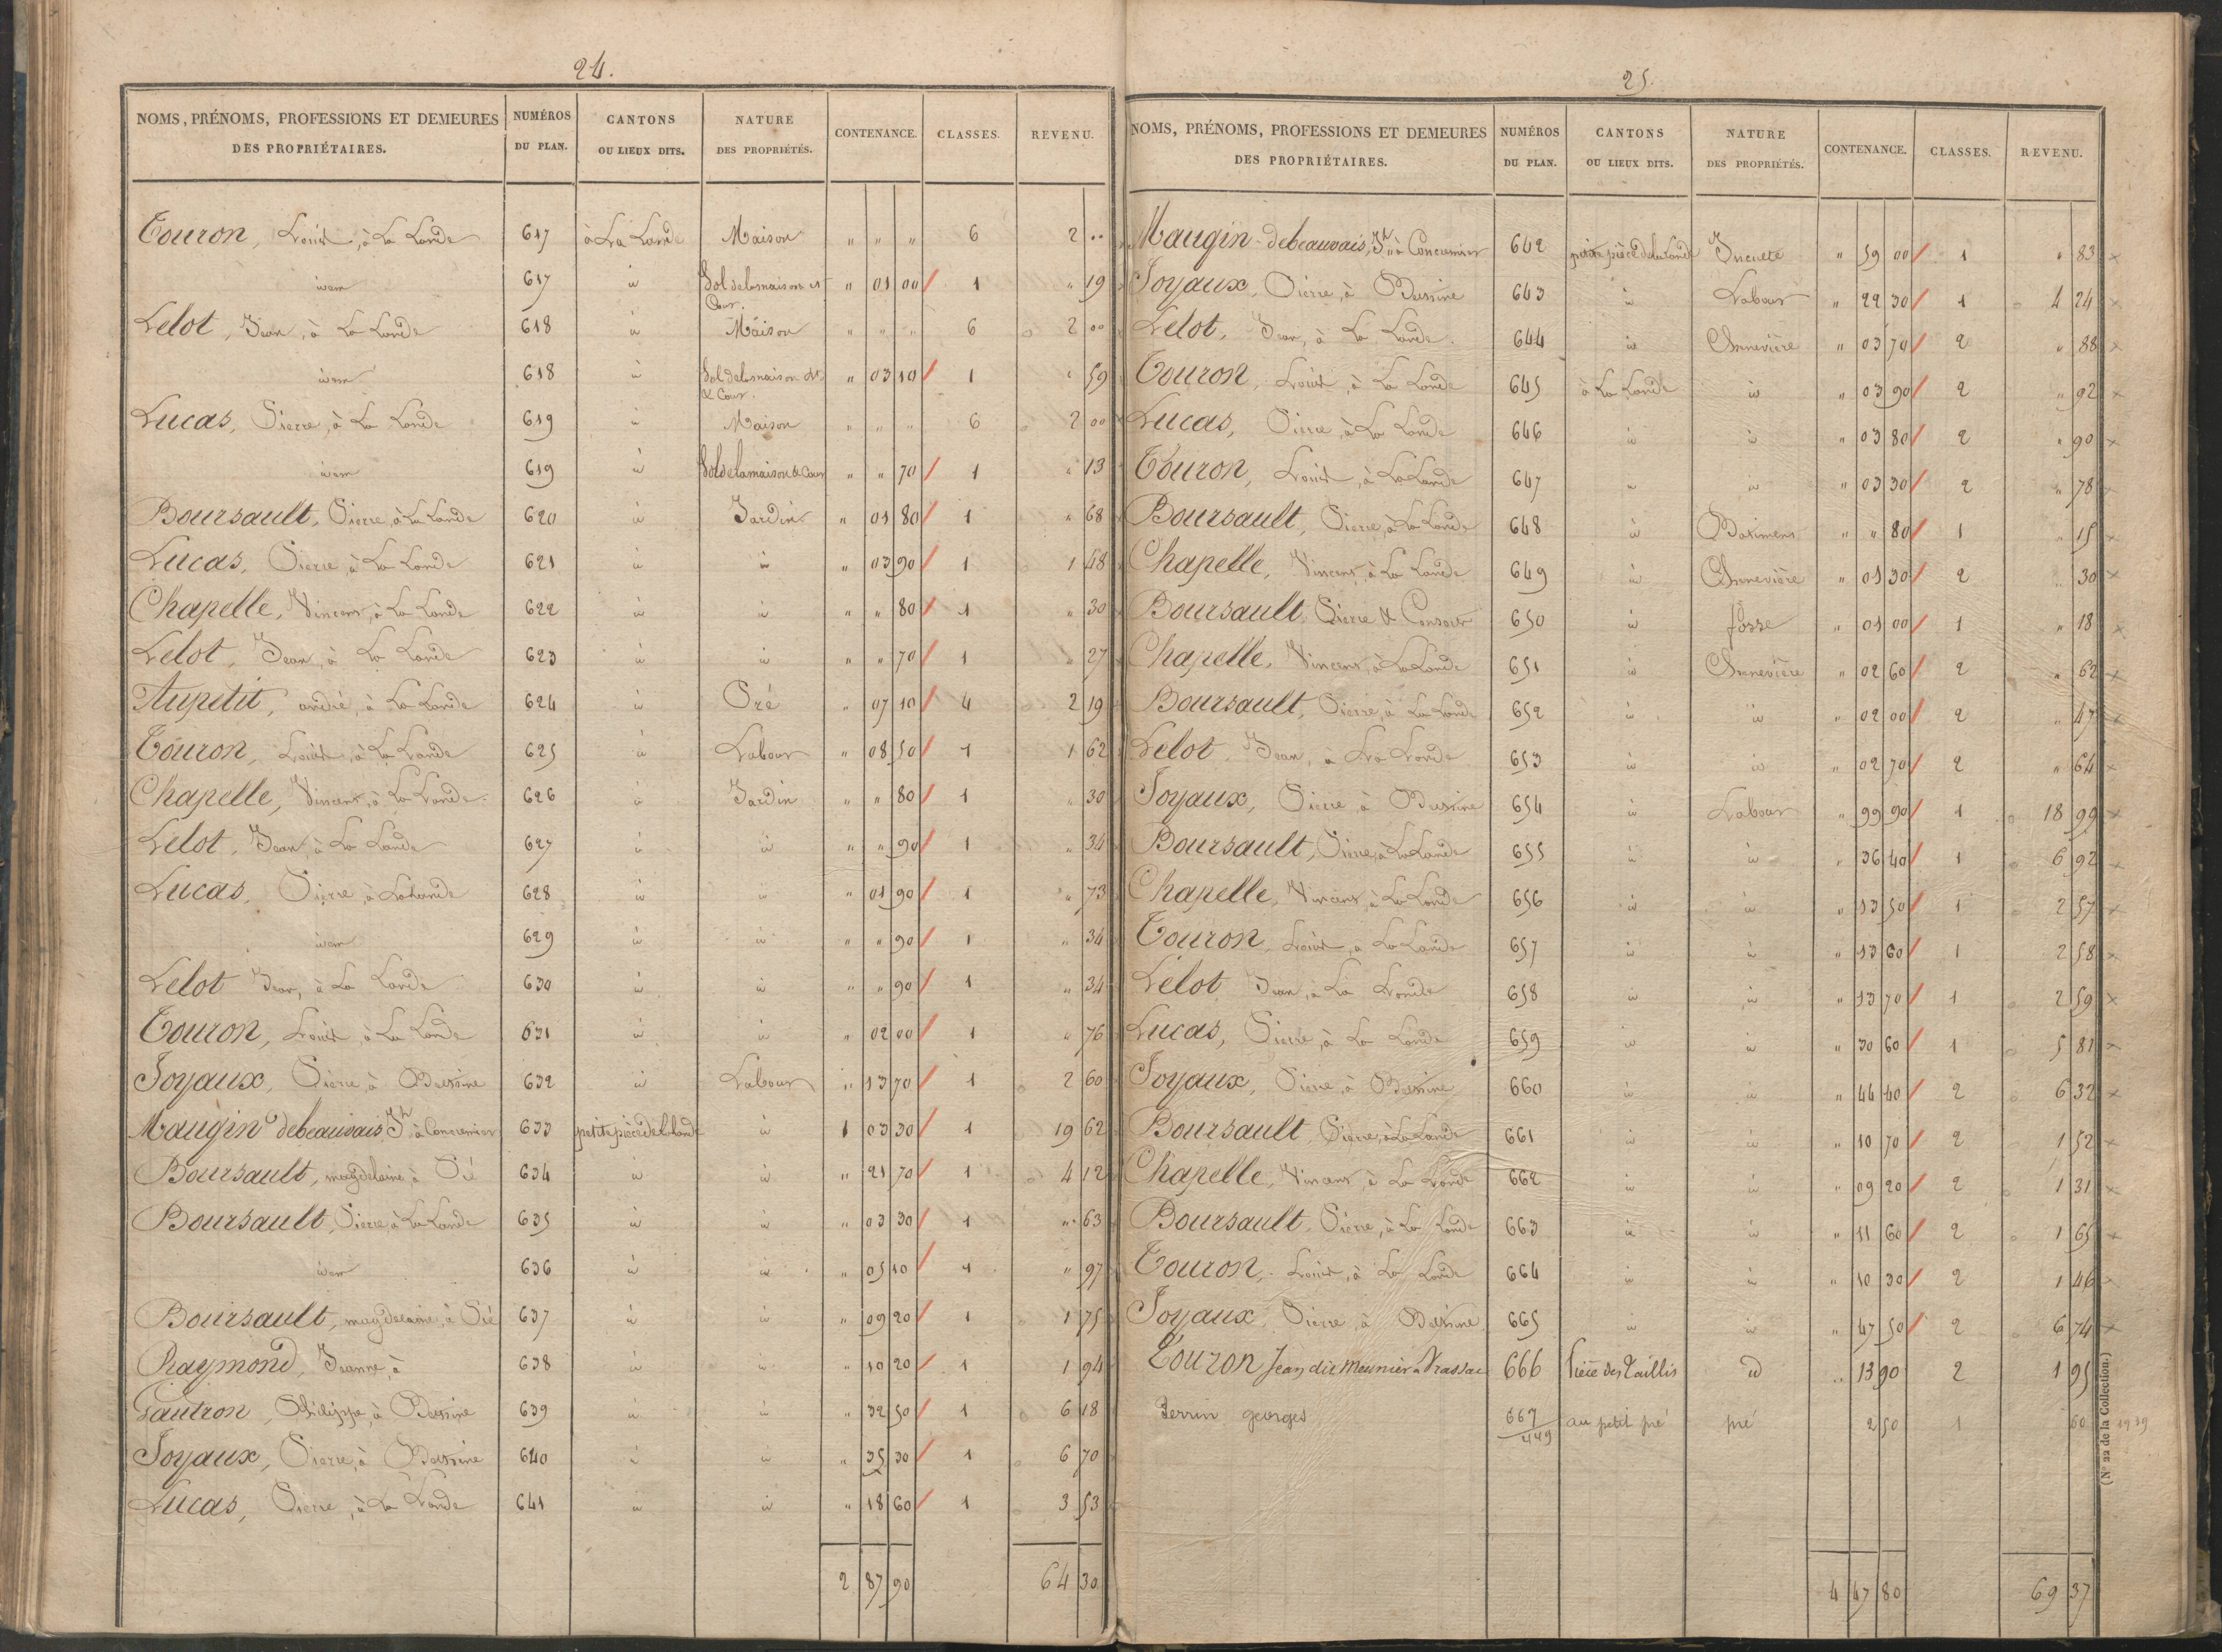 24.
NOMS, PRÉNOMS, PROFESSIONS ET DEMEURES DES PROPRIÉTAIRES. NUMÉROS DU PLAN. CANTONS OU LIEUX DITS. NATURE DES PROPRIÉTÉS. CONTENANCE. CLASSES. REVENU.
Touron, Louis, à La Lande 617 à La Lande Maison " " " 6 2 "
idem 617 id Sol de la maison et Cour. " 01 00 1 " 19
Lelot, Jean, à La Lande 618 id Maison " " " 6 2 00
idem 618 id Sol de la maison et & Cour. " 03 10 1 " 59
Lucas, Pierre, à La Lande 619 id Maison " " " 6 2 00
idem 619 id Sol de la maison & Cour " " 70 1 " 13
Boursault, Pierre, à La Lande 620 id Jardin " 01 80 1 " 68
Lucas, Pierre, à La Lande 621 id id " 03 90 1 1 48
Chapelle, Vincent, à La Lande 622 id id " " 80 1 " 30
Lelot, Jean, à La Lande 623 id id " " 70 1 " 27
Aupetit, andré, à La Lande 624 id Pré " 07 10 4 2 19
Touron, Louis, à La Lande 625 id Labour " 08 50 1 1 62
Chapelle, Vincent, à La Lande 626 id Jardin " " 80 1 " 30
Lelot, Jean, à La Lande 627 id id " " 90 1 " 34
Lucas, Pierre, à La Lande 628 id id " 01 90 1 " 73
idem 629 id id " " 90 1 " 34
Lelot Jean, à La Lande 630 id id " " 90 1 " 34
Touron, Louis, à La Lande 631 id id " 02 00 1 " 76
Joyaux, Pierre, à Bussine 632 id Labour " 13 70 1 2 60
Maugin debeauvais, Jh à Concremier 633 petite pièce de la lande id 1 03 30 1 19 62
Boursault, magdelaine à Pié 634 id id " 21 70 1 4 12
Boursault, Pierre, à La Lande 635 id id " 03 30 1 " 63
idem 636 id id " 05 10 1 " 97
Boursault, magdelaine, à Pié 637 id id " 09 20 1 1 75
Raymond, Jeanne, à 638 id id " 10 20 1 1 94
Gautron, Philippe, à Bussine 639 id id " 32 50 1 6 18
Joyaux, Pierre, à Bussine 640 id id " 35 30 1 6 70
Lucas, Pierre, à La Lande 641 id id " 18 60 1 3 53
2 87 90 64 30
25.
NOMS, PRÉNOMS, PROFESSIONS ET DEMEURES DES PROPRIÉTAIRES. NUMÉROS DU PLAN. CANTONS OU LIEUX DITS. NATURE DES PROPRIÉTÉS. CONTENANCE. CLASSES. REVENU.
Maugin-debeauvais, Jh à Concremier 642 petite pièce de la Lande Inculte " 59 00 1 " 83 x
Joyaux, Pierre, à Bussine 643 id Labour " 22 30 1 4 24 x
Lelot, Jean, à La Lande. 644 id Chenevière " 03 70 2 " 88 x
Touron, Louis, à La Lande 645 à La Lande id " 03 90 2 " 92 x
Lucas, Pierre, à La Lande 646 id id " 03 80 2 " 90 x
Touron, Louis, à La Lande 647 id id " 03 30 2 " 78 x
Boursault, Pierre, à La Lande 648 id Batimens " " 80 1 " 15 x
Chapelle, Vincent, à La Lande 649 id Chenevière " 01 30 2 " 30 x
Boursault, Pierre & Consors 650 id fosse " 01 00 1 " 18 x
Chapelle, Vincent, à La Lande 651 id Chenevière " 02 60 2 " 62 x
Boursault, Pierre, à La Lande 652 id id " 02 00 2 " 47 x
Lelot, Jean, à La Lande 653 id id " 02 70 2 " 64 x
Joyaux, Pierre, à Bussine 654 id Labour " 99 90 1 18 99 x
Boursault, Pierre, à La Lande 655 id id " 36 40 1 6 92 x
Chapelle, Vincent, à La Lande 656 id id " 13 50 1 2 57 x
Touron, Louis, à La Lande 657 id id " 13 60 1 2 58 x
Lelot Jean, à La Lande 658 id id " 13 70 1 2 59 x
Lucas, Pierre, à La Lande 659 id id " 30 60 1 5 81 x
Joyaux, Pierre, à Bussine 660 id id " 44 40 2 6 32 x
Boursault, Pierre, à La Lande 661 id id " 10 70 2 1 52 x
Chapelle, Vincent, à La Lande 662 id id " 09 20 2 1 31 x
Boursault, Pierre, à La Lande 663 id id " 11 60 2 1 65 x
Touron, Louis, à La Lande 664 id id " 10 30 2 1 46 x
Joyaux, Pierre, à Bussine 665 id id " 47 50 2 6 74 x
Touron Jean dit Meunier a 666 Pièce des Taillis id " 13 90 2 1 95
Perrin georges 667/449 au petit pré pré 2 50 1 60 1939
4 47 80 69 37
(N° 22 de la Collection.)